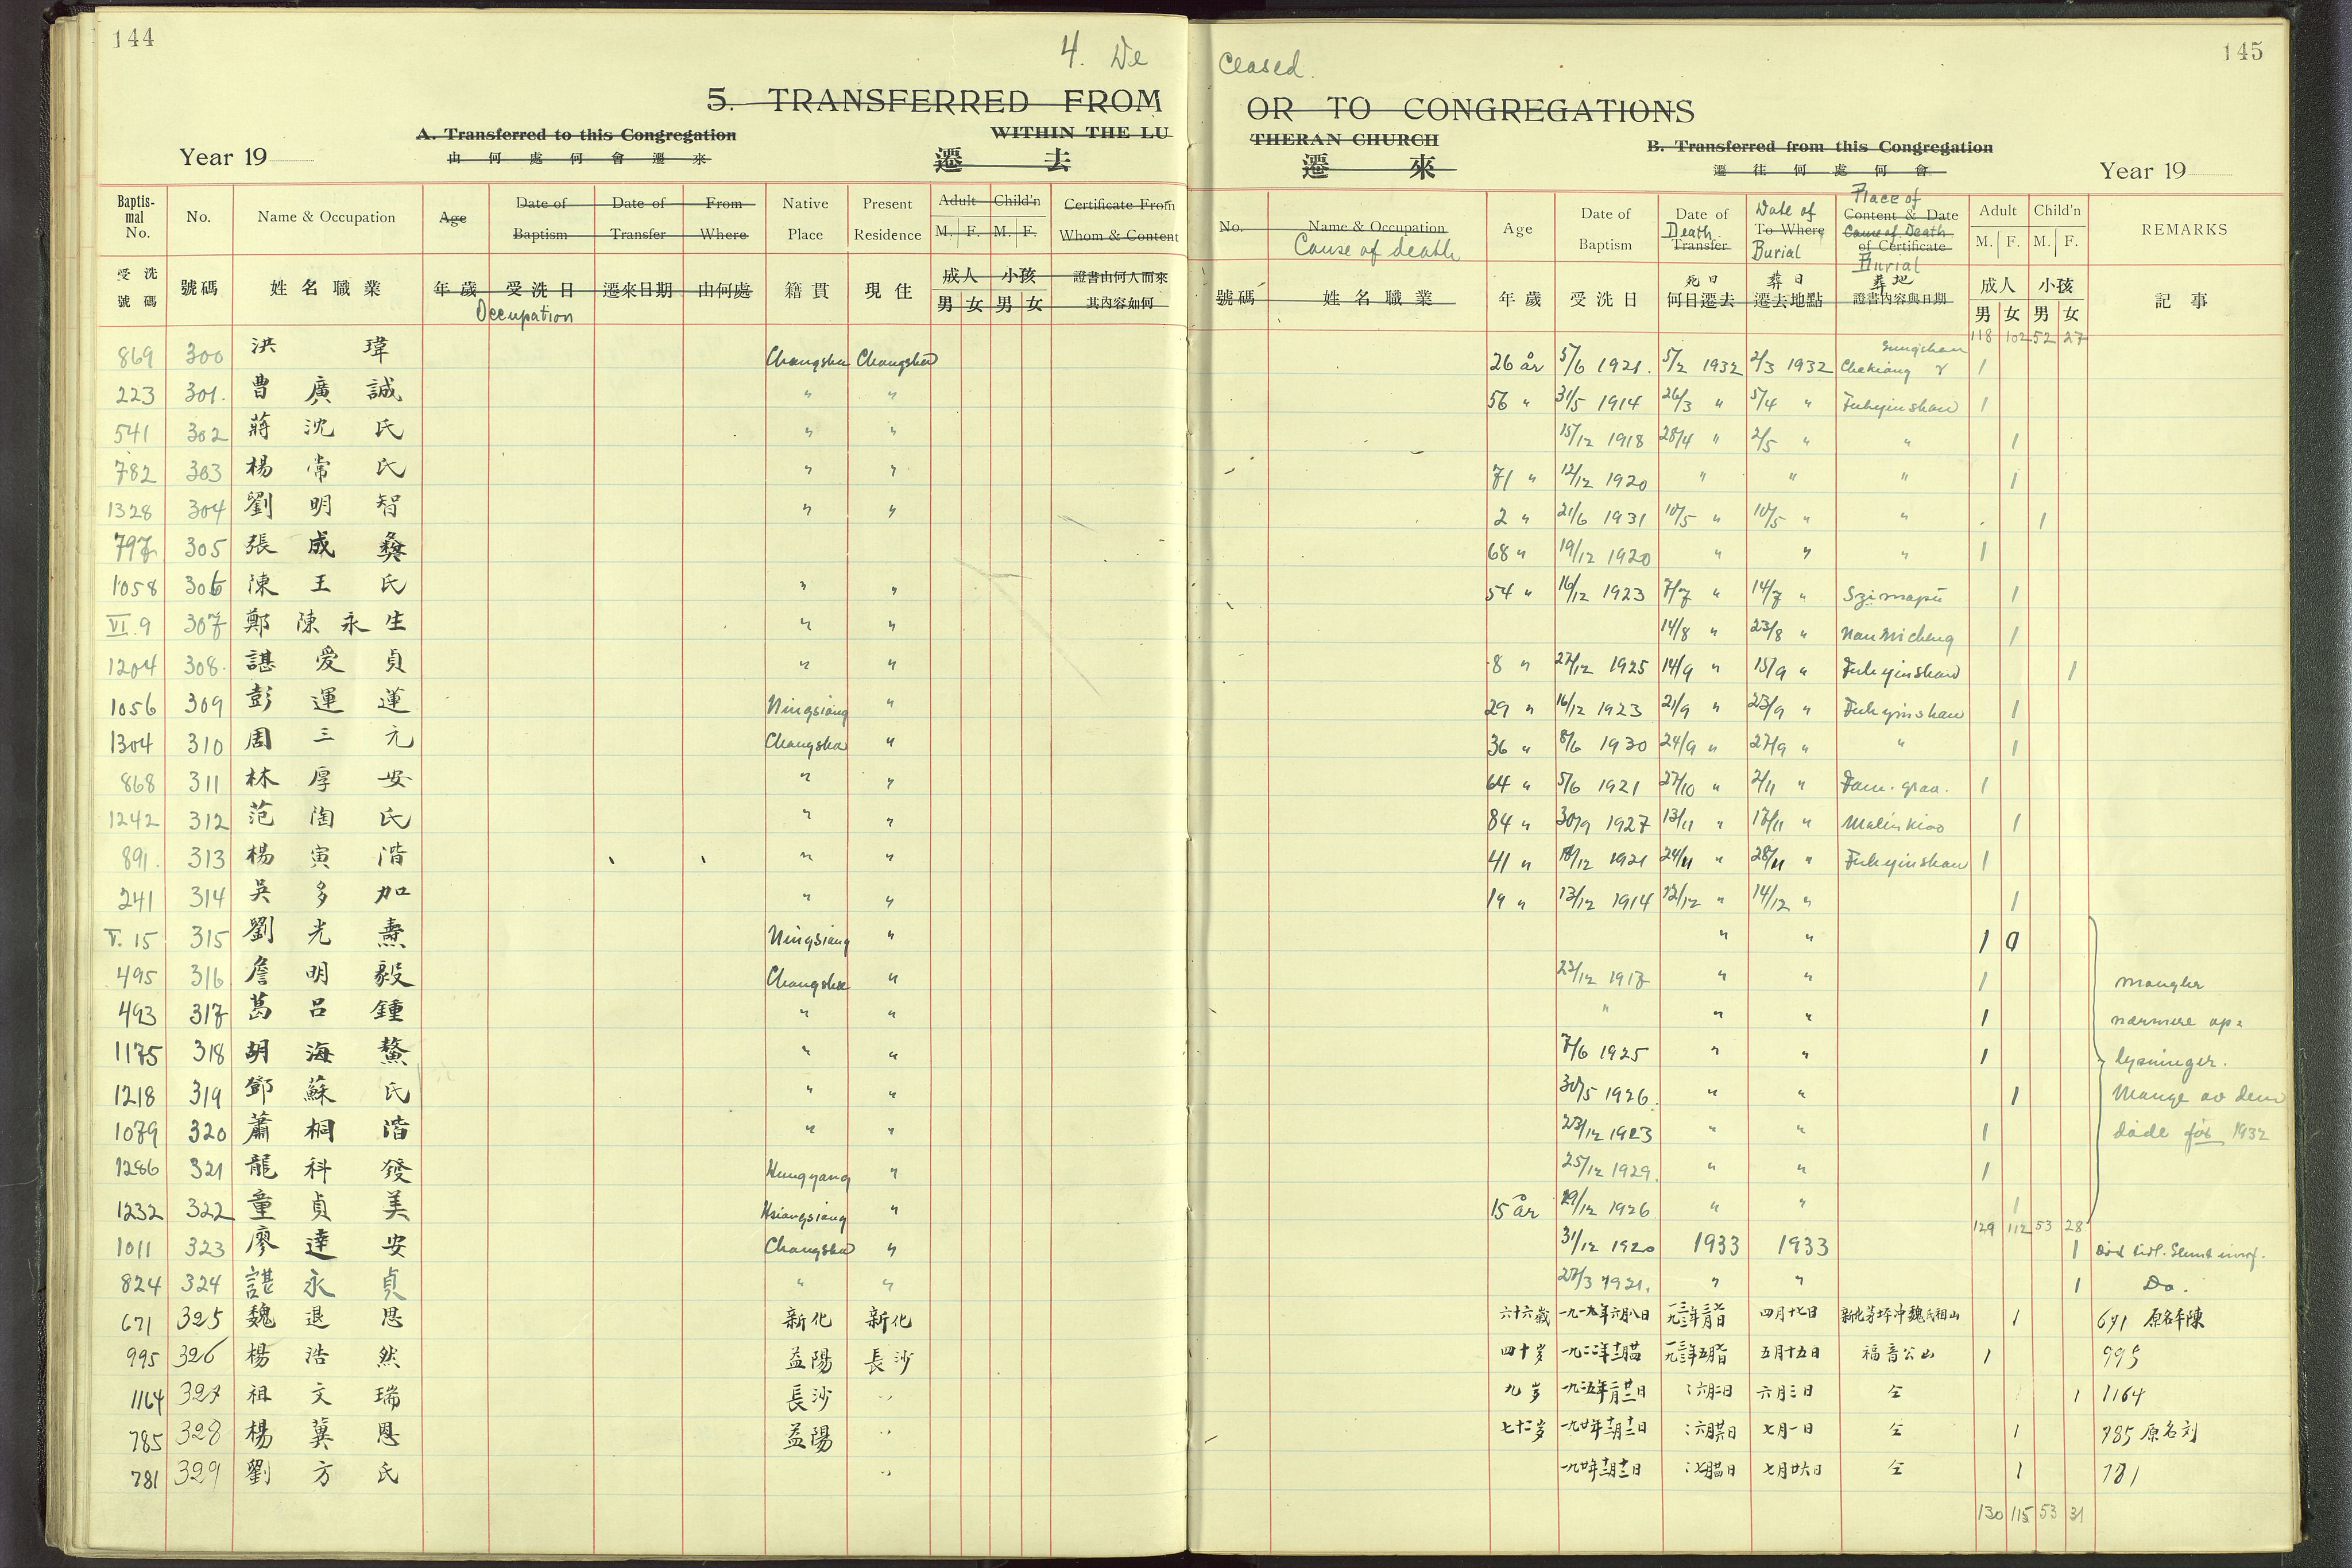 144
4. De
5. TRANSFERRED FROM
A. Transferred to this Congregation
WITHIN THE LU
Year 19
由何處何會遷來
遷去
Baptismal No.
No.
Name & Occupation
Age
Date of Baptism
Date of Transfer
From Where
Native Place
Present Residence
Adult
Child'n
M. F. M. F.
Certificate From Whom & Content
受洗號碼
號碼
姓名職業
年歲
受洗日
遷來日期
由何處
籍貫
現住
成人
小孩
男 女 男 女
證書由何人而來其內容如何
Occupation
869 300 洪瑋 Changsha Changsha
223 301. 曹廣誠 " "
541 302 蔣沈氏 " "
782 303 楊常氏 " "
1328 304 劉明智 " "
797 305 張成彝
1058 306 陳王氏 " "
VI.9 307 鄭陳永生 " "
1204 308. 諶愛貞 " "
1056 309 彭運蓮 Ningsiang "
1304 310 周三元 Changsha "
868 311 林厚安 " "
1242 312 范陶氏 " "
891. 313 楊寅湝 " "
241 314 吳多加 " "
V. 15 315 劉光燾 Ningsiang "
495 316 詹明毅 Changsha "
493 317 葛呂鍾 " "
1175 318 胡海鰲 " "
1218 319 鄧蘇氏 " "
1079 320 蕭桐湝 " "
1286 321 龍科發 Hengyang "
1232 322 童貞美 Hsiangsiang "
1011 323 廖達安 Changsha "
824 324 諶永貞 " "
671 325 魏退恩 新化 新化
995 326 楊浩然 益陽 長沙
1164 327 祖文瑞 長沙 "
785 328 楊冀恩 益陽 "
781 329 劉方氏 "
145
ceased.
OR TO CONGREGATIONS
THERAN CHURCH
B. Transferred from this Congregation
遷來
遷往何處何會
Year 19
No.
Name & Occupation
Cause of death
Age
Date of Baptism
Date of Transfer
Death
Date of
To Where
Burial
Place of
Content & Date of Certificate
Cause of Death
Burial
Adult
Child'n
M. F. M. F.
REMARKS
號碼
姓名職業
年歲
受洗日
死日
何日遷去
葬日
遷去地點
葬地
證書內容與日期
成人
小孩
男 女 男 女
記事
118 102 52 27
26 år 5/6 1921. 5/2 1932 2/3 1932 Chekiang 1
56 " 31/5 1914 26/3 " 5/4 " Fuhyinshan 1
15/12 1918 28/4 " 2/5 " " 1
71 " 12/12 1920 " " " 1
2 " 21/6 1931 10/5 " 10/5 " " 1
68 " 19/12 1920 " " " 1
54 " 16/12 1923 7/7 " 14/7 " Szimapu 1
14/8 " 23/8 " Nanmicheng 1
8 " 27/12 1925 14/9 " 15/9 " Fuhyinshan 1
29 " 16/12 1923 21/9 " 23/9 " Fuhyinshan 1
36 " 8/6 1930 24/9 " 27/9 " " 1
64 " 5/6 1921 27/10 " 2/11 " Fam. grav. 1
84 " 30/9 1927 13/11 " 17/11 " Malinkiao 1
41 " 18/12 1921 24/11 " 28/11 " Fuhyinshan 1
19 " 13/12 1914 12/12 " 14/12 " 1
" " 1 0
23/12 1917 " " 1 mangler
" " " 1 nærmere op=
7/6 1925 " " 1 lysninger.
30/5 1926. " " 1 Mange av dem
23/12 1923 " " 1 døde før 1932
25/12 1929. " " 1
15 år 29/12 1926 " " 1
129 112 53 28
31/12 1920 1933 1933 1
27/3 1921. " " 1 Do.
六十六歲 一九一九年六月八日 四月十七日 新化茅坪冲魏氏祖山 1 671 原名本陳
四十岁 五月十五日 福音公山 1 995
九岁 六月三日 仝 1 1164
七十二岁 七月一日 仝 1 785 原名刘
七月廿六日 仝 1 781
130 115 53 31